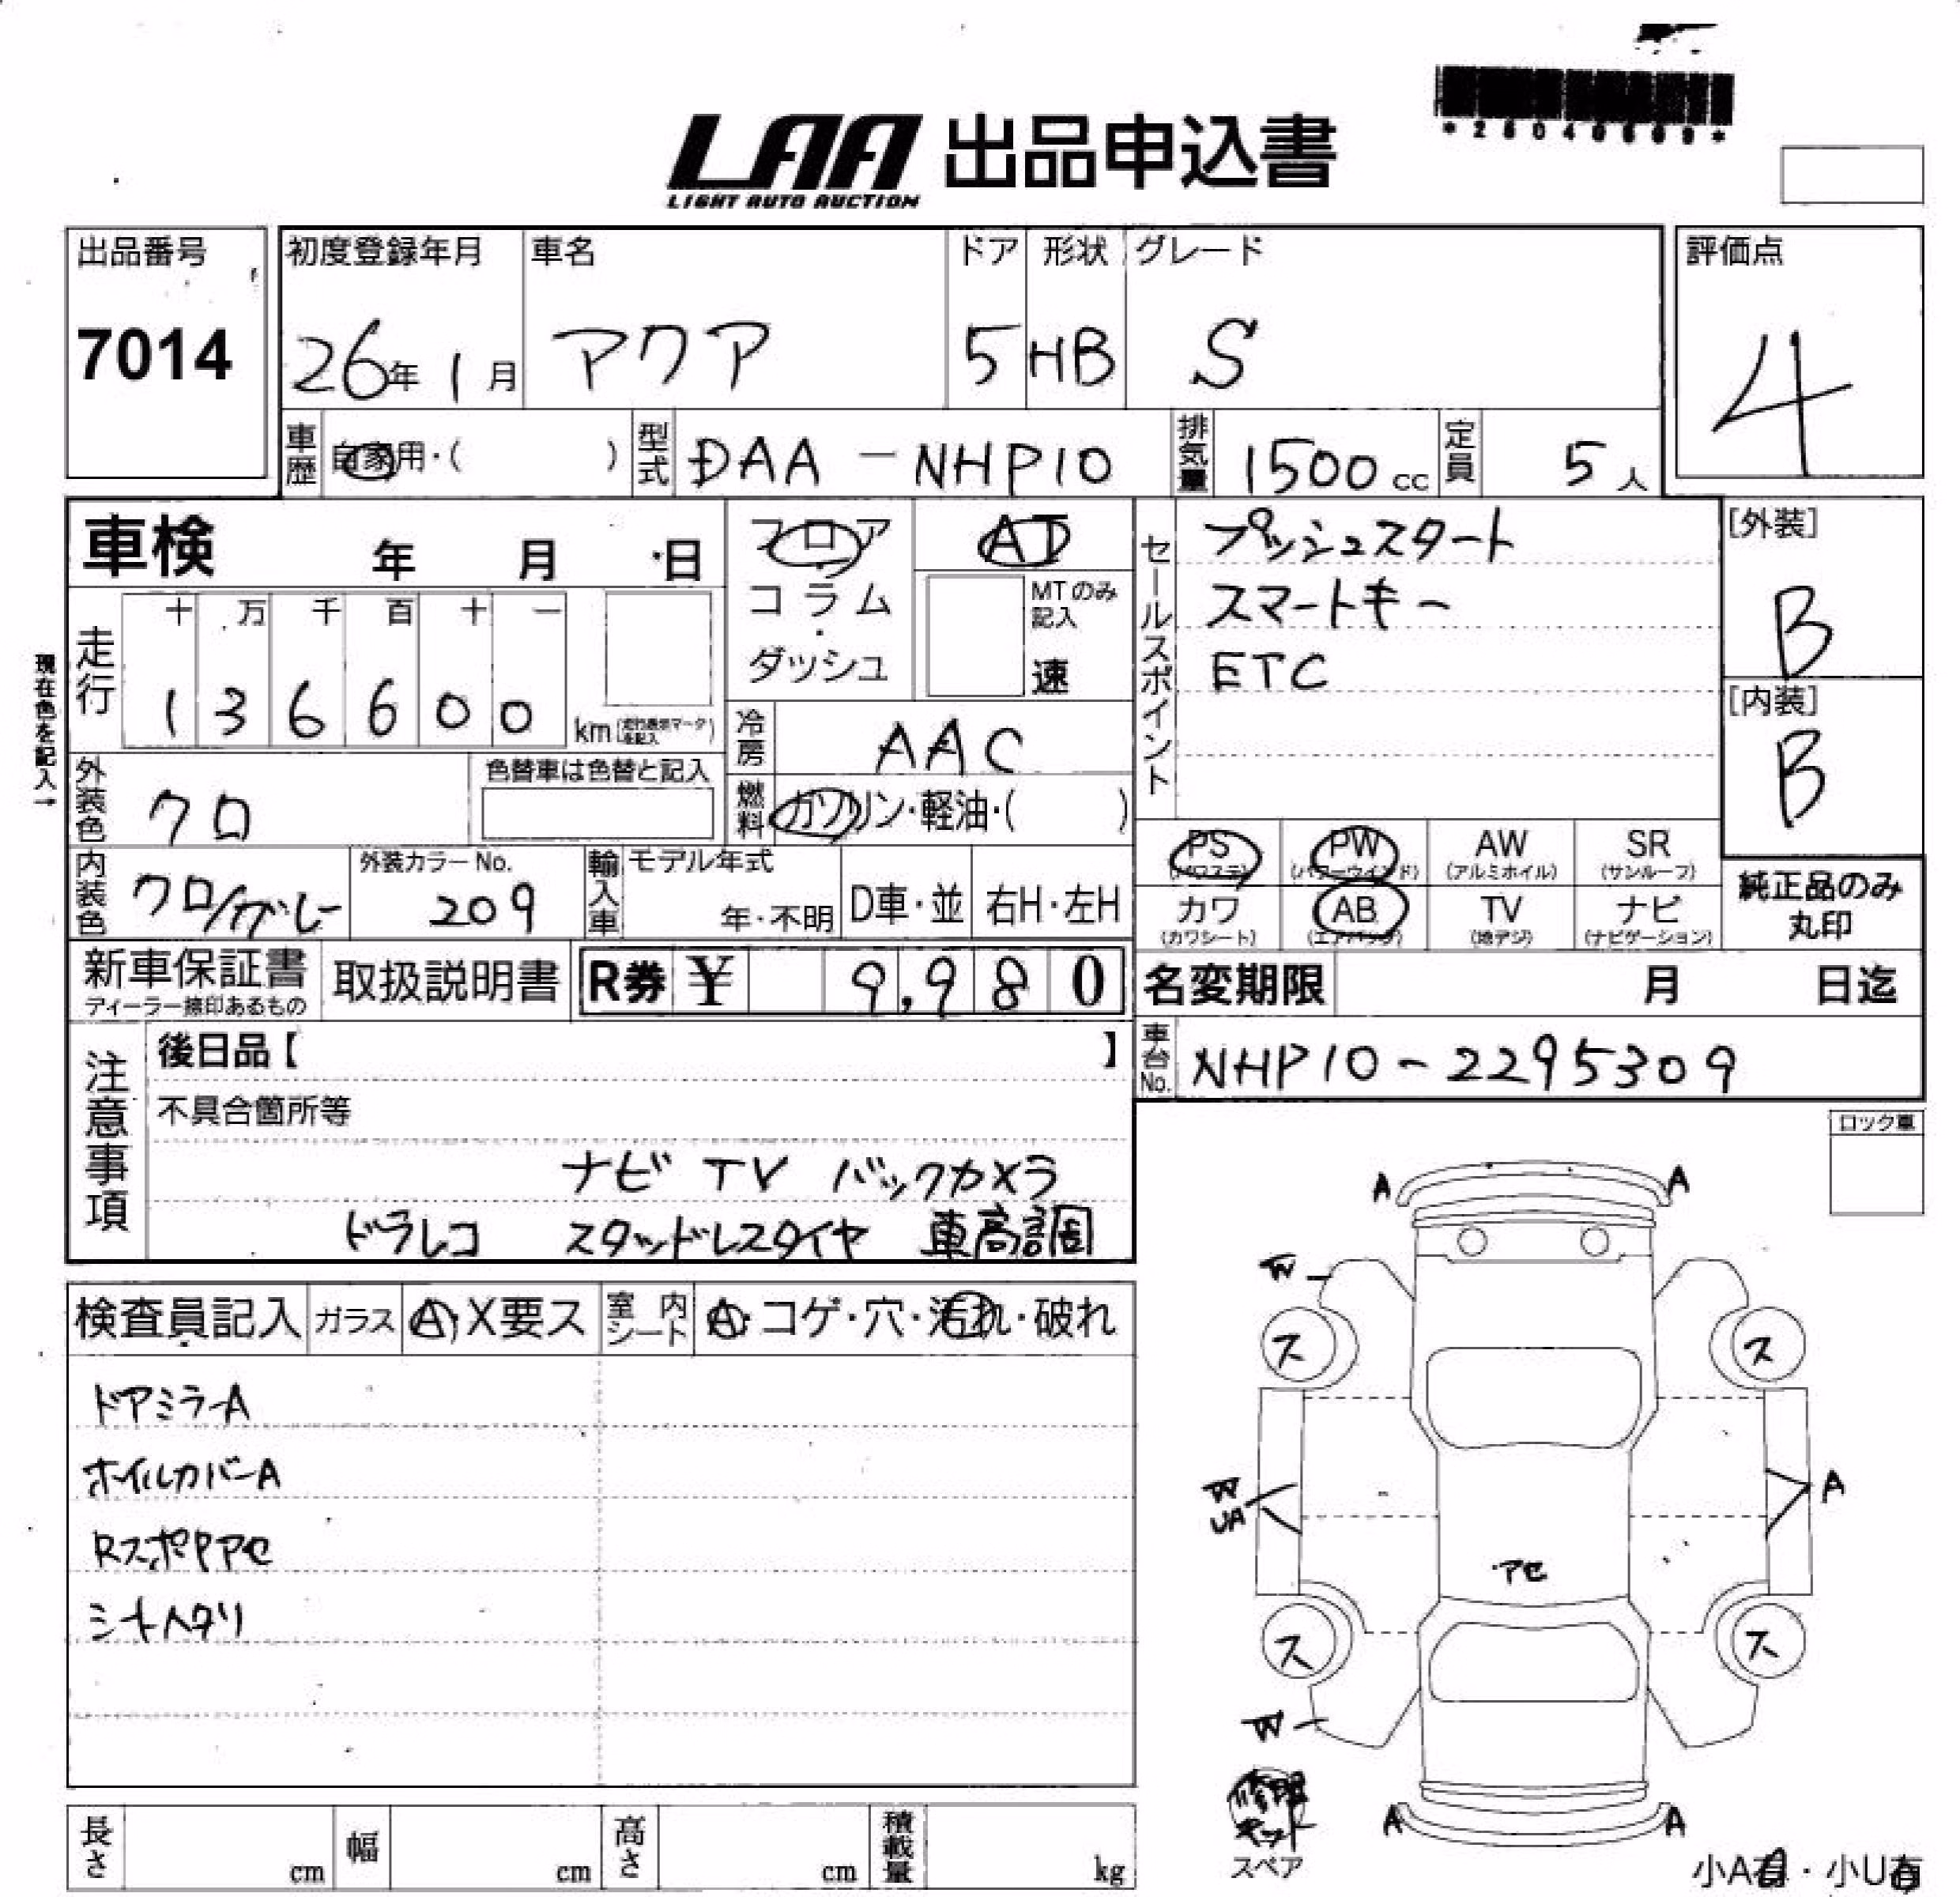 LAA 出品申込書
LIGHT AUTO AUCTION
出品番号
7014
初度登録年月
26年 1月
車名
アクア
ドア
5
形状
HB
グレード
S
評価点
4
車歴 自家用・( )
型式 DAA-NHP10
排気量 1500cc
定員 5人
車検 年 月 日
フロア
コラム
・
ダッシュ
AT
MTのみ
記入
速
セールスポイント
プッシュスタート
スマートキー
ETC
[外装]
B
[内装]
B
現在色を記入→
走行
十 万 千 百 十 一
1 3 6 6 0 0 km
冷房 AAC
燃料 ガソリン・軽油・( )
外装色 クロ
色替車は色替と記入
内装色 クロ/グレー
外装カラーNo.
209
輸入車
モデル年式
年・不明
D車・並
右H・左H
PS (パワステ)
PW (パワーウインド)
AW (アルミホイル)
SR (サンルーフ)
カワ (カワシート)
AB (エアバック)
TV (地デジ)
ナビ (ナビゲーション)
純正品のみ
丸印
新車保証書
ディーラー捺印あるもの
取扱説明書
R券 ¥ 9,980
名変期限 月 日迄
車台No. NHP10-2295309
注意事項
後日品【 】
不具合箇所等
ナビ TV バックカメラ
ドラレコ スタッドレスタイヤ 車高調
ロック車
検査員記入
ガラス A・X要ス
室内シート A・コゲ・穴・汚れ・破れ
ドアミラーA
ホイルカバーA
RスポPアセ
シートヘタリ
A A
W
ス ス
W
UA
A
アセ
ス ス
W
修理
キット
スペア
A A
小A有・小U有
長さ cm
幅 cm
高さ cm
積載量 kg